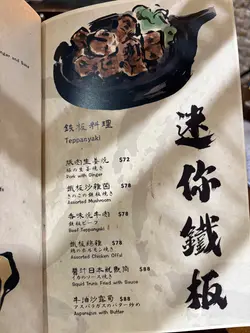 鉄板料理
Teppanyaki
豚肉生姜燒 $78
豚の生姜焼き
Pork with Ginger
鐵板沙雜菌 $78
きのこの鉄板焼き
Assorted Mushroom
香味燒牛肉 $88
鉄板ビーフ
Beef Teppanyaki
鐵板鷄雜 $88
鶏のホルモン焼き
Assorted Chicken Offal
醬汁日本魷魚筒 $88
イカのソース焼き
Squid Trunk Fried with Sauce
牛油沙露筍 $88
アスパラガスのバター炒め
Asparagus with Butter
迷你鐵板